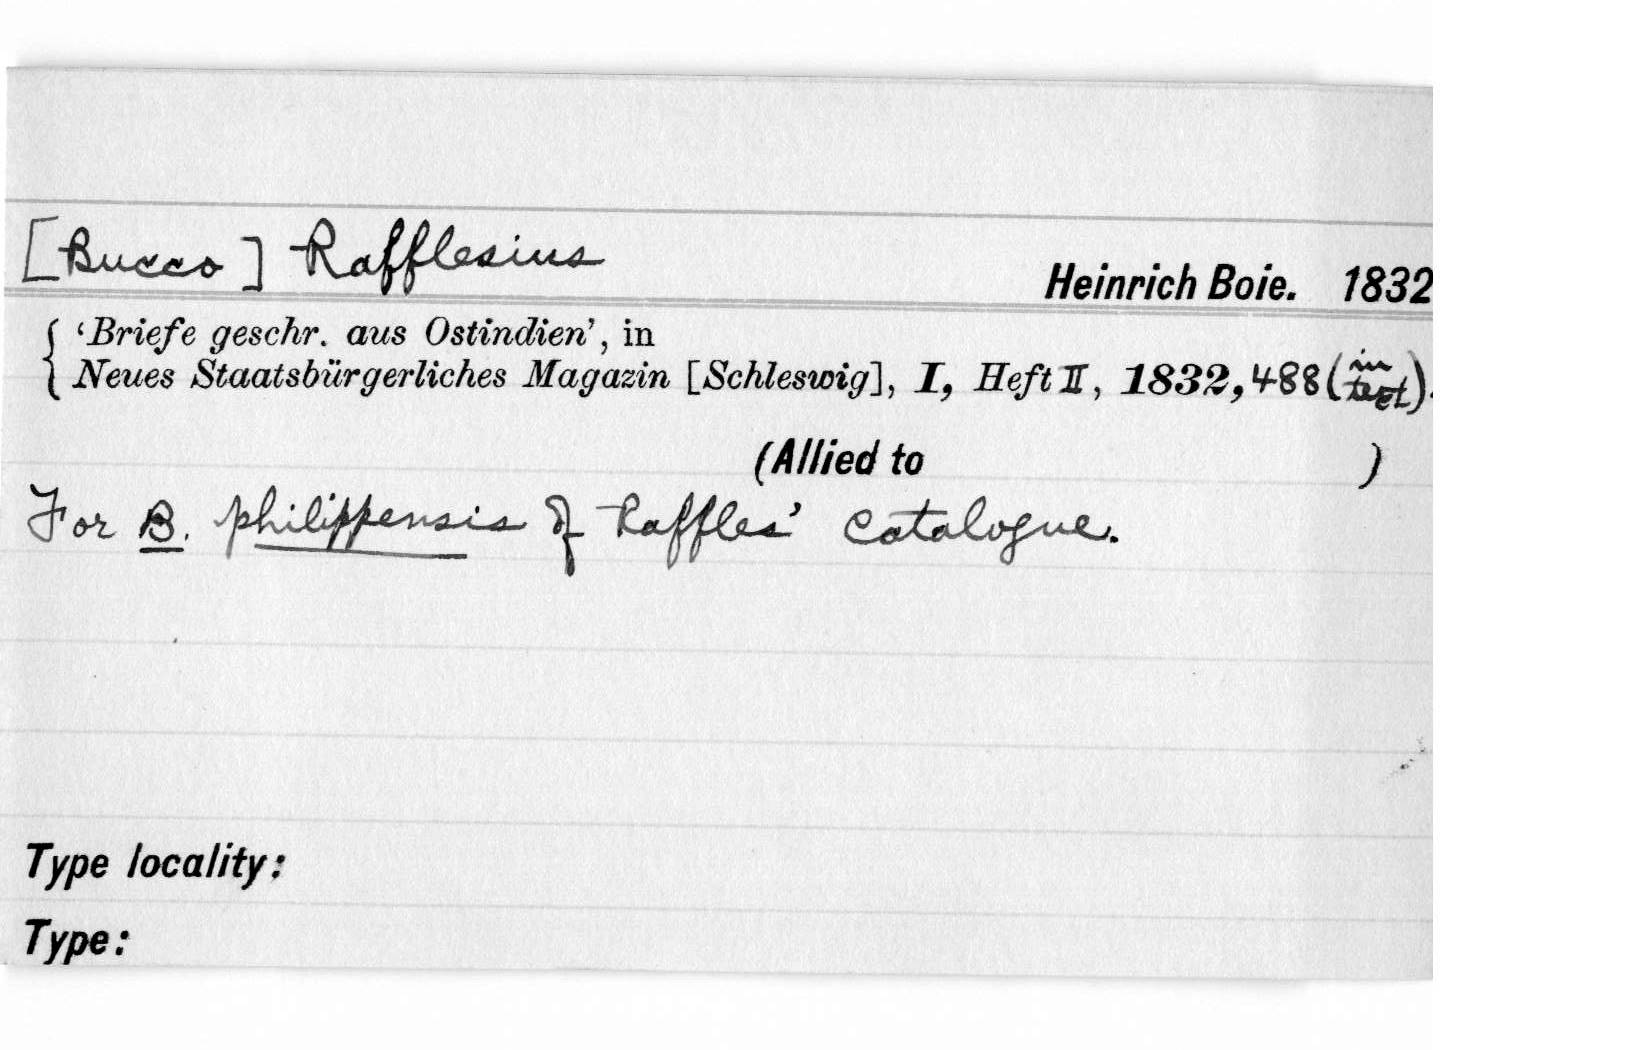 [Bucco] Rafflesius
Heinrich Boie. 1832
'Briefe geschr. aus Ostindien', in
Neues Staatsbürgerliches Magazin [Schleswig], I, Heft II, 1832, 488 (in text).
(Allied to )
For B. philippensis of Raffles' catalogue.
Type locality:
Type: